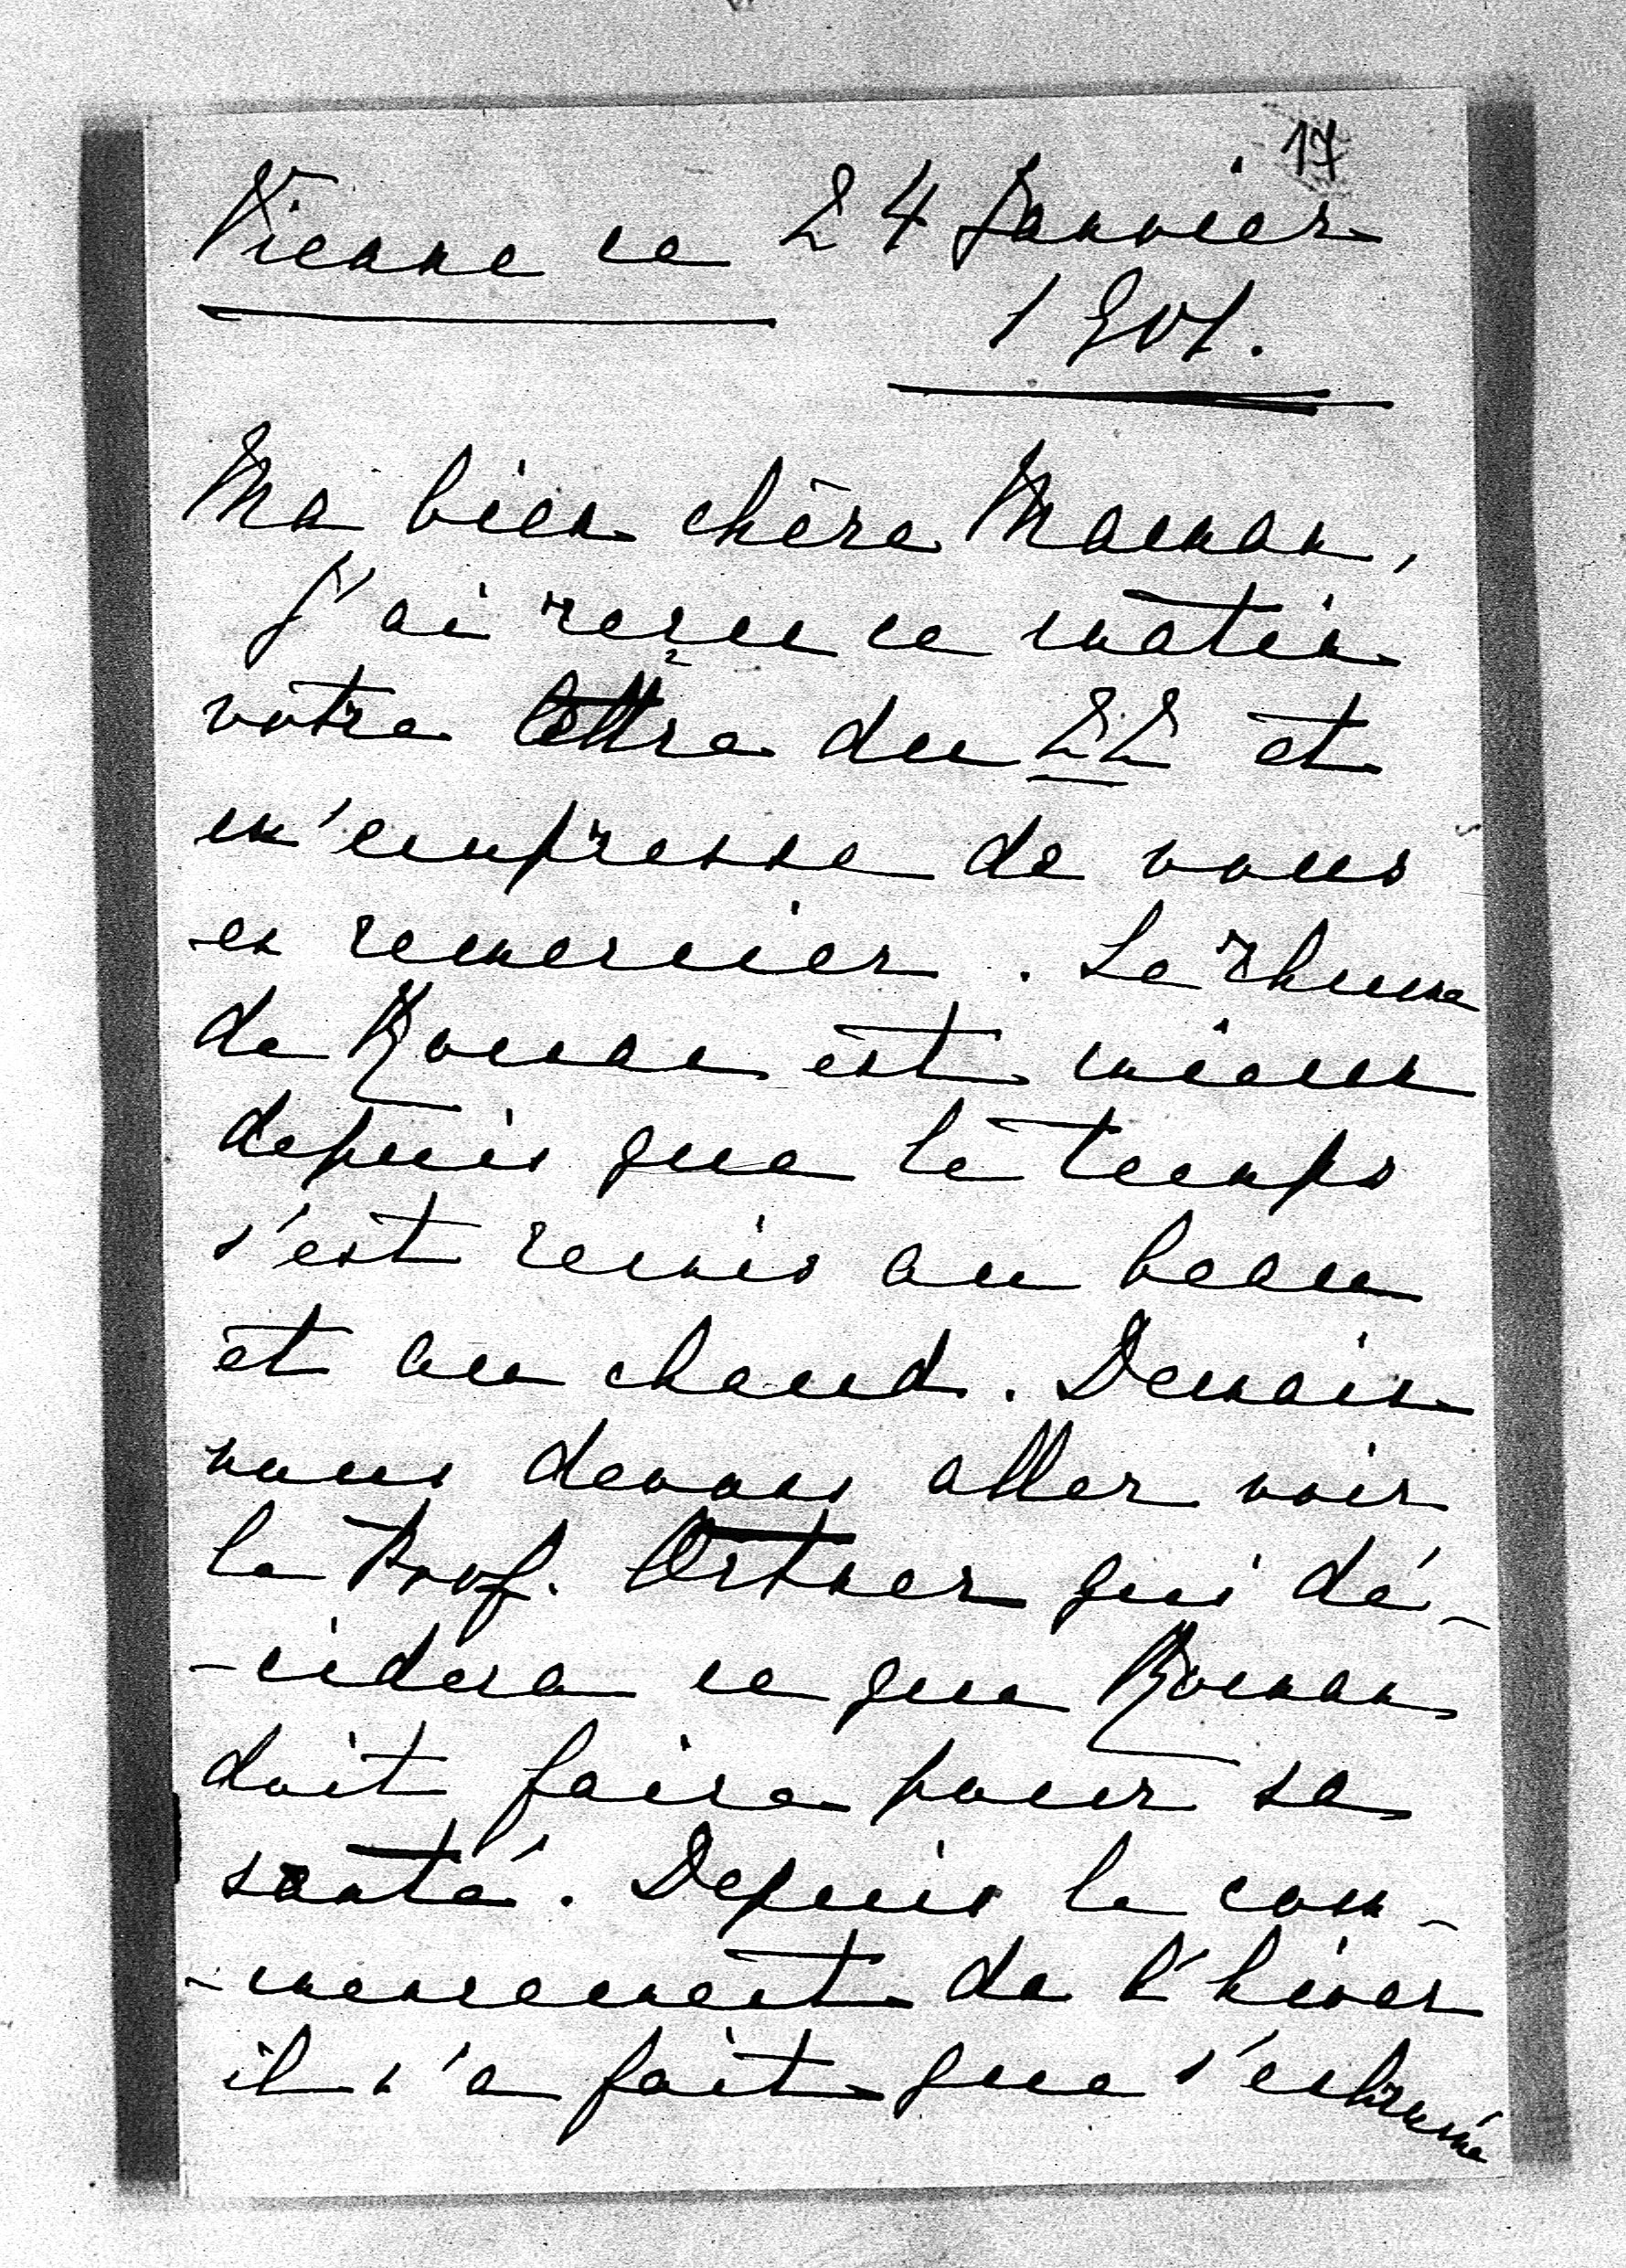 17
Vienne ce 24 Janvier
1901.
Ma bien chère Maman,
J'ai reçu ce matin
votre lettre du 22 et
m'empresse de vous
en remercier. Le rhume
de Roman est mieux
depuis que le temps
s'est remis au beau
et au chaud. Demain
nous devons aller voir
le Prof. Ortner qui dé-
-cidera ce que Roman
doit faire pour sa
santé. Depuis le com-
-mencement de l'hiver
il n'a fait que s'enrhumé